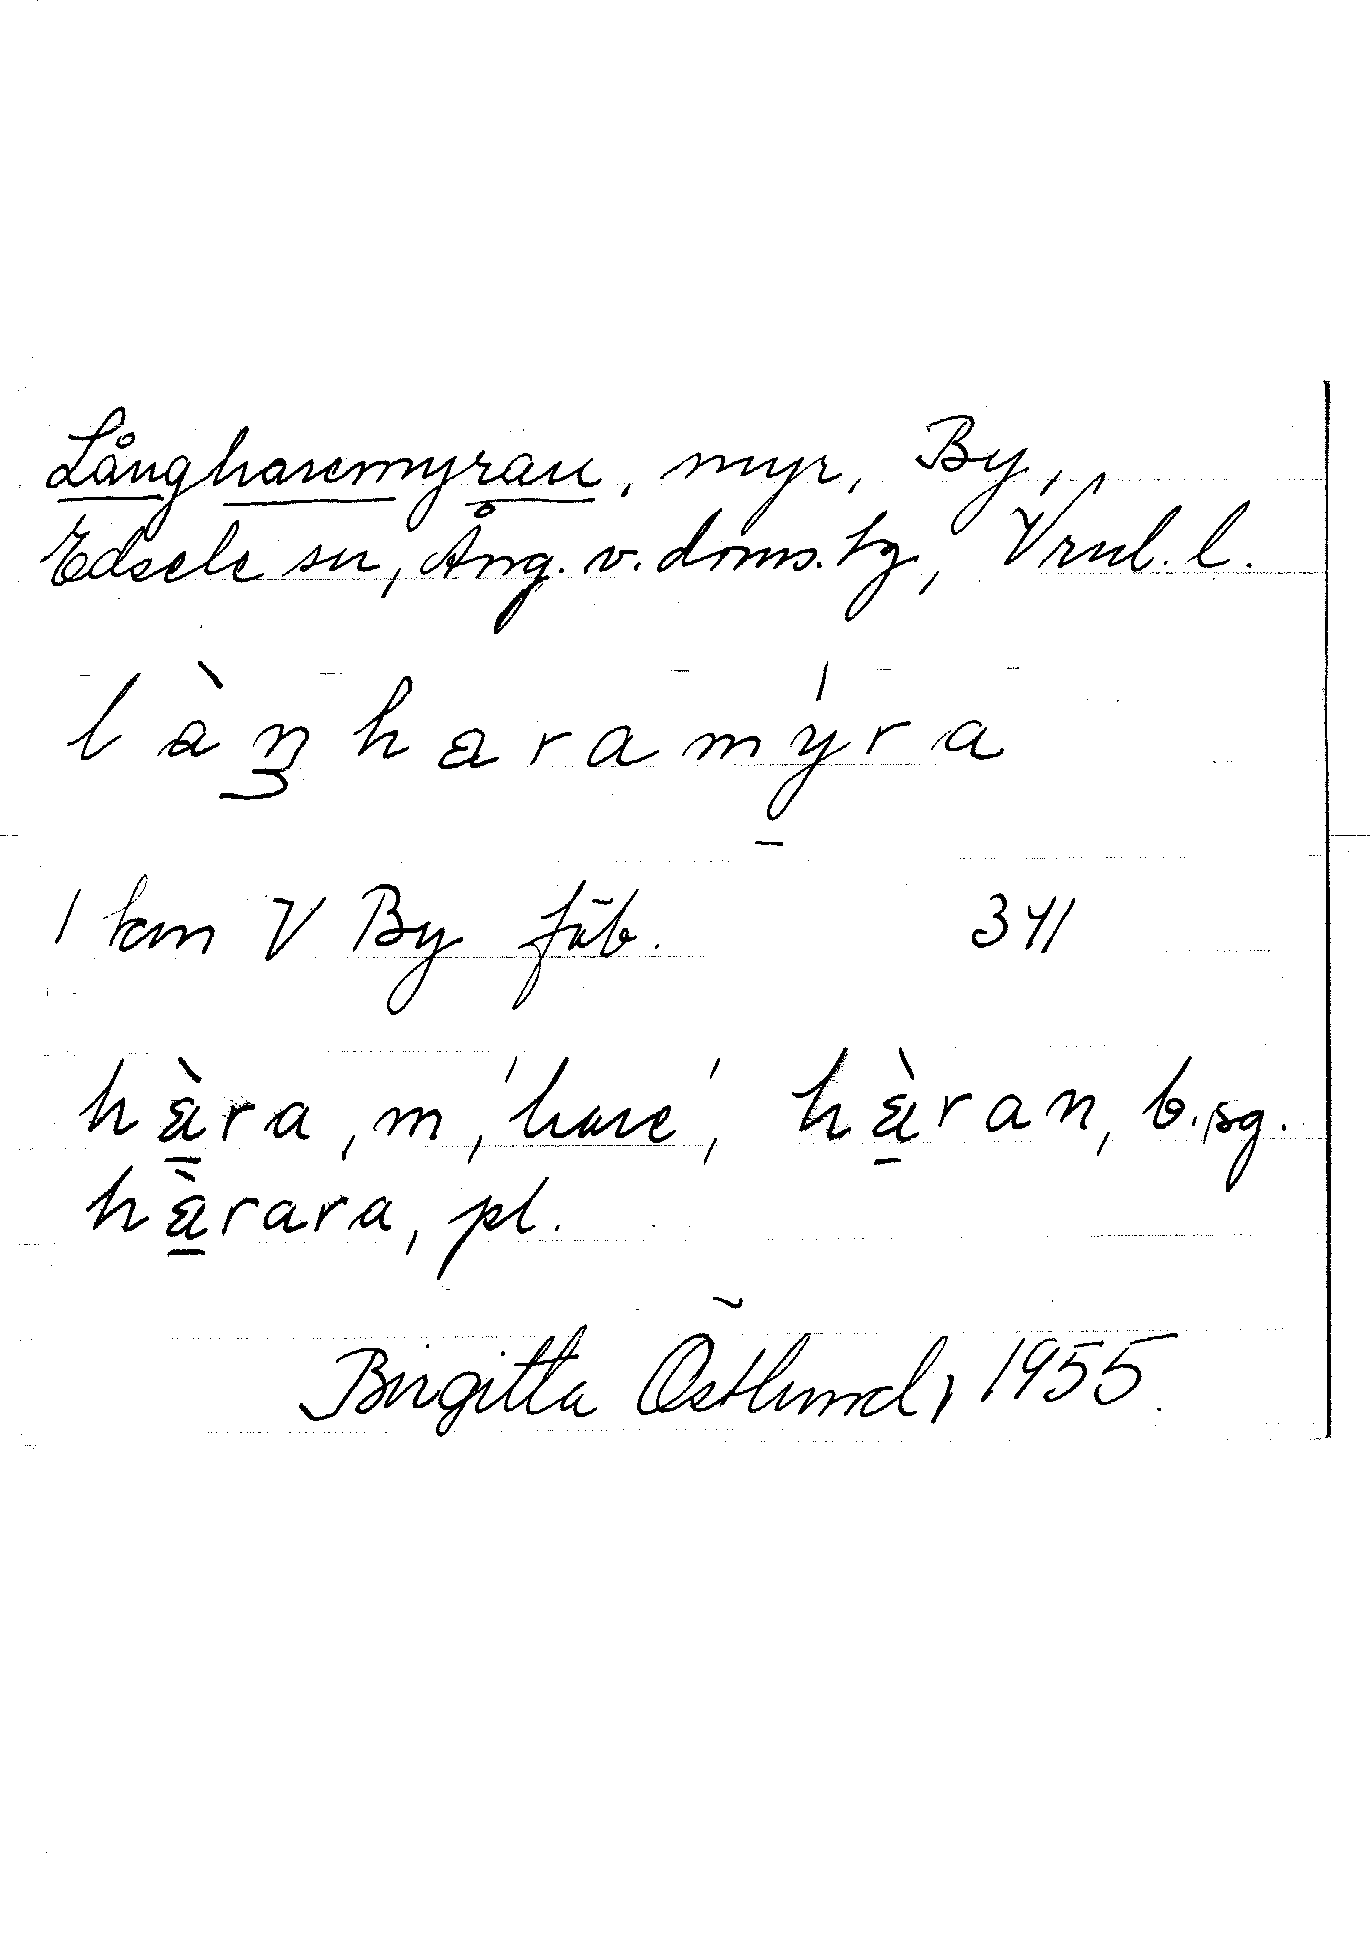 Långharemyran, myr, By,
Edsele sn, Ång. v. doms. tg, Vrnl. l.
làŋharamýra
1 km V By fäb. 341
hàra, m, 'hare', hàran, b. sg.
hàrara, pl.
Birgitta Östlund, 1955.